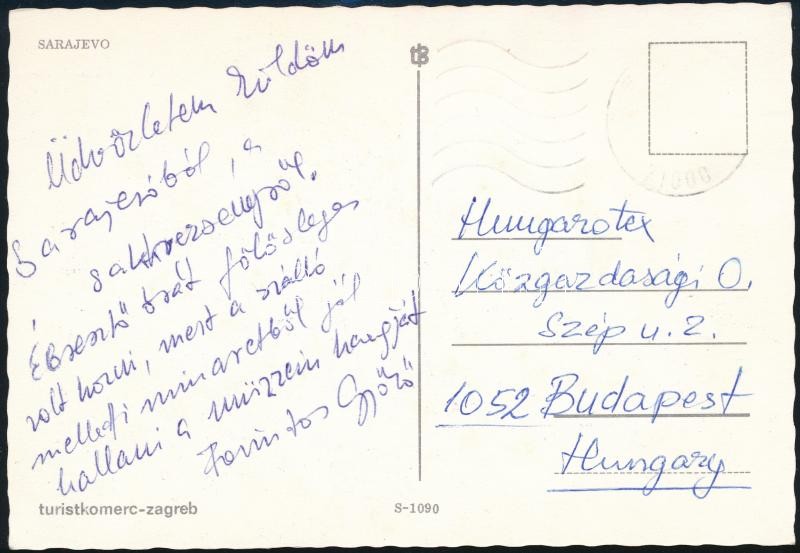 SARAJEVO
Üdvözletem küldöm
Sarajevóból, a
sakkversenyről.
Ébresztő órát fölösleges
volt hozni, mert a szálló
melletti minaretből jól
hallani a müezzin hangját
Forintos Győző
turistkomerc-zagreb
S-1090
tB
71000
Hungarotex
Közgazdasági O.
Szép u. 2.
1052 Budapest
Hungary